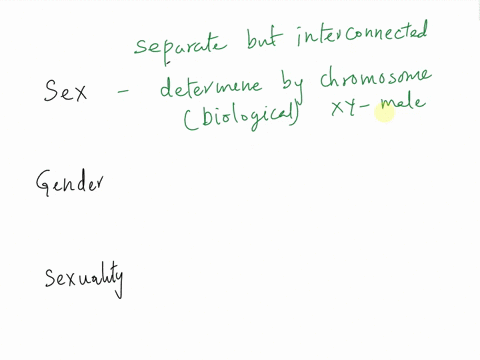 separate but interconnected
Sex - determene by chromosome
(biological) XY- male
Gender
Sexuality